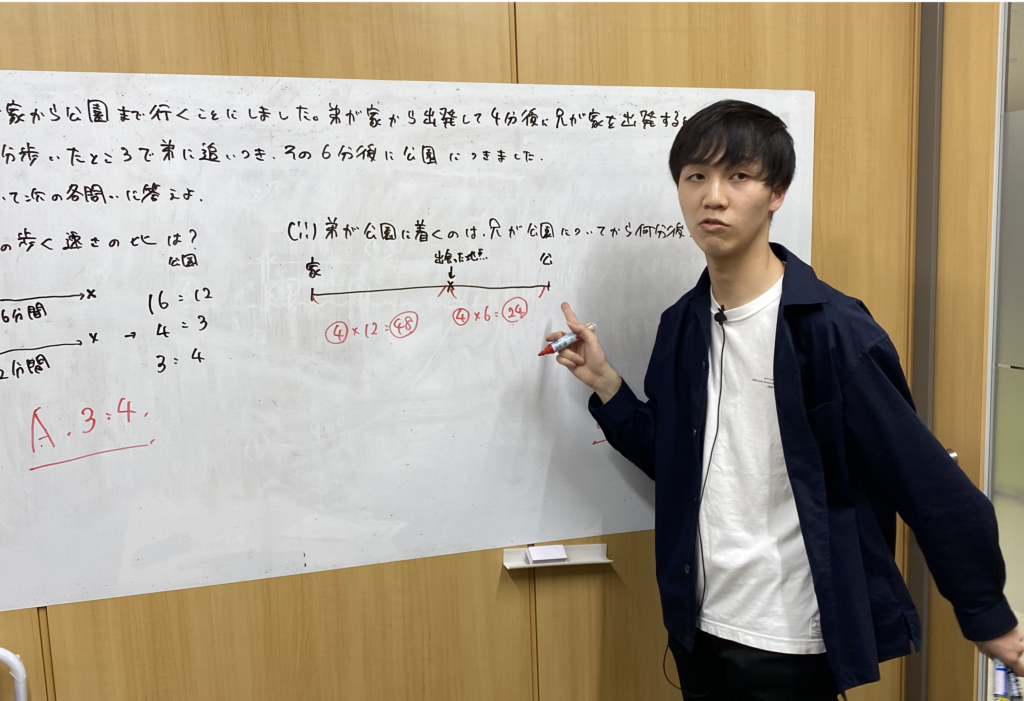 家から公園まで行くことにしました。弟が家から出発して4分後に兄が家を出発する
分歩いたところで弟に追いつき、その6分後に公園につきました。
いて次の各問いに答えよ。
の歩く速さの比は?
公園
6分間
2分間
16:12
→ 4:3
3:4
A.3:4.
(ii) 弟が公園に着くのは、兄が公園についてから何分後
家
出会った地点
公
④×12=㊽
④×6=㉔